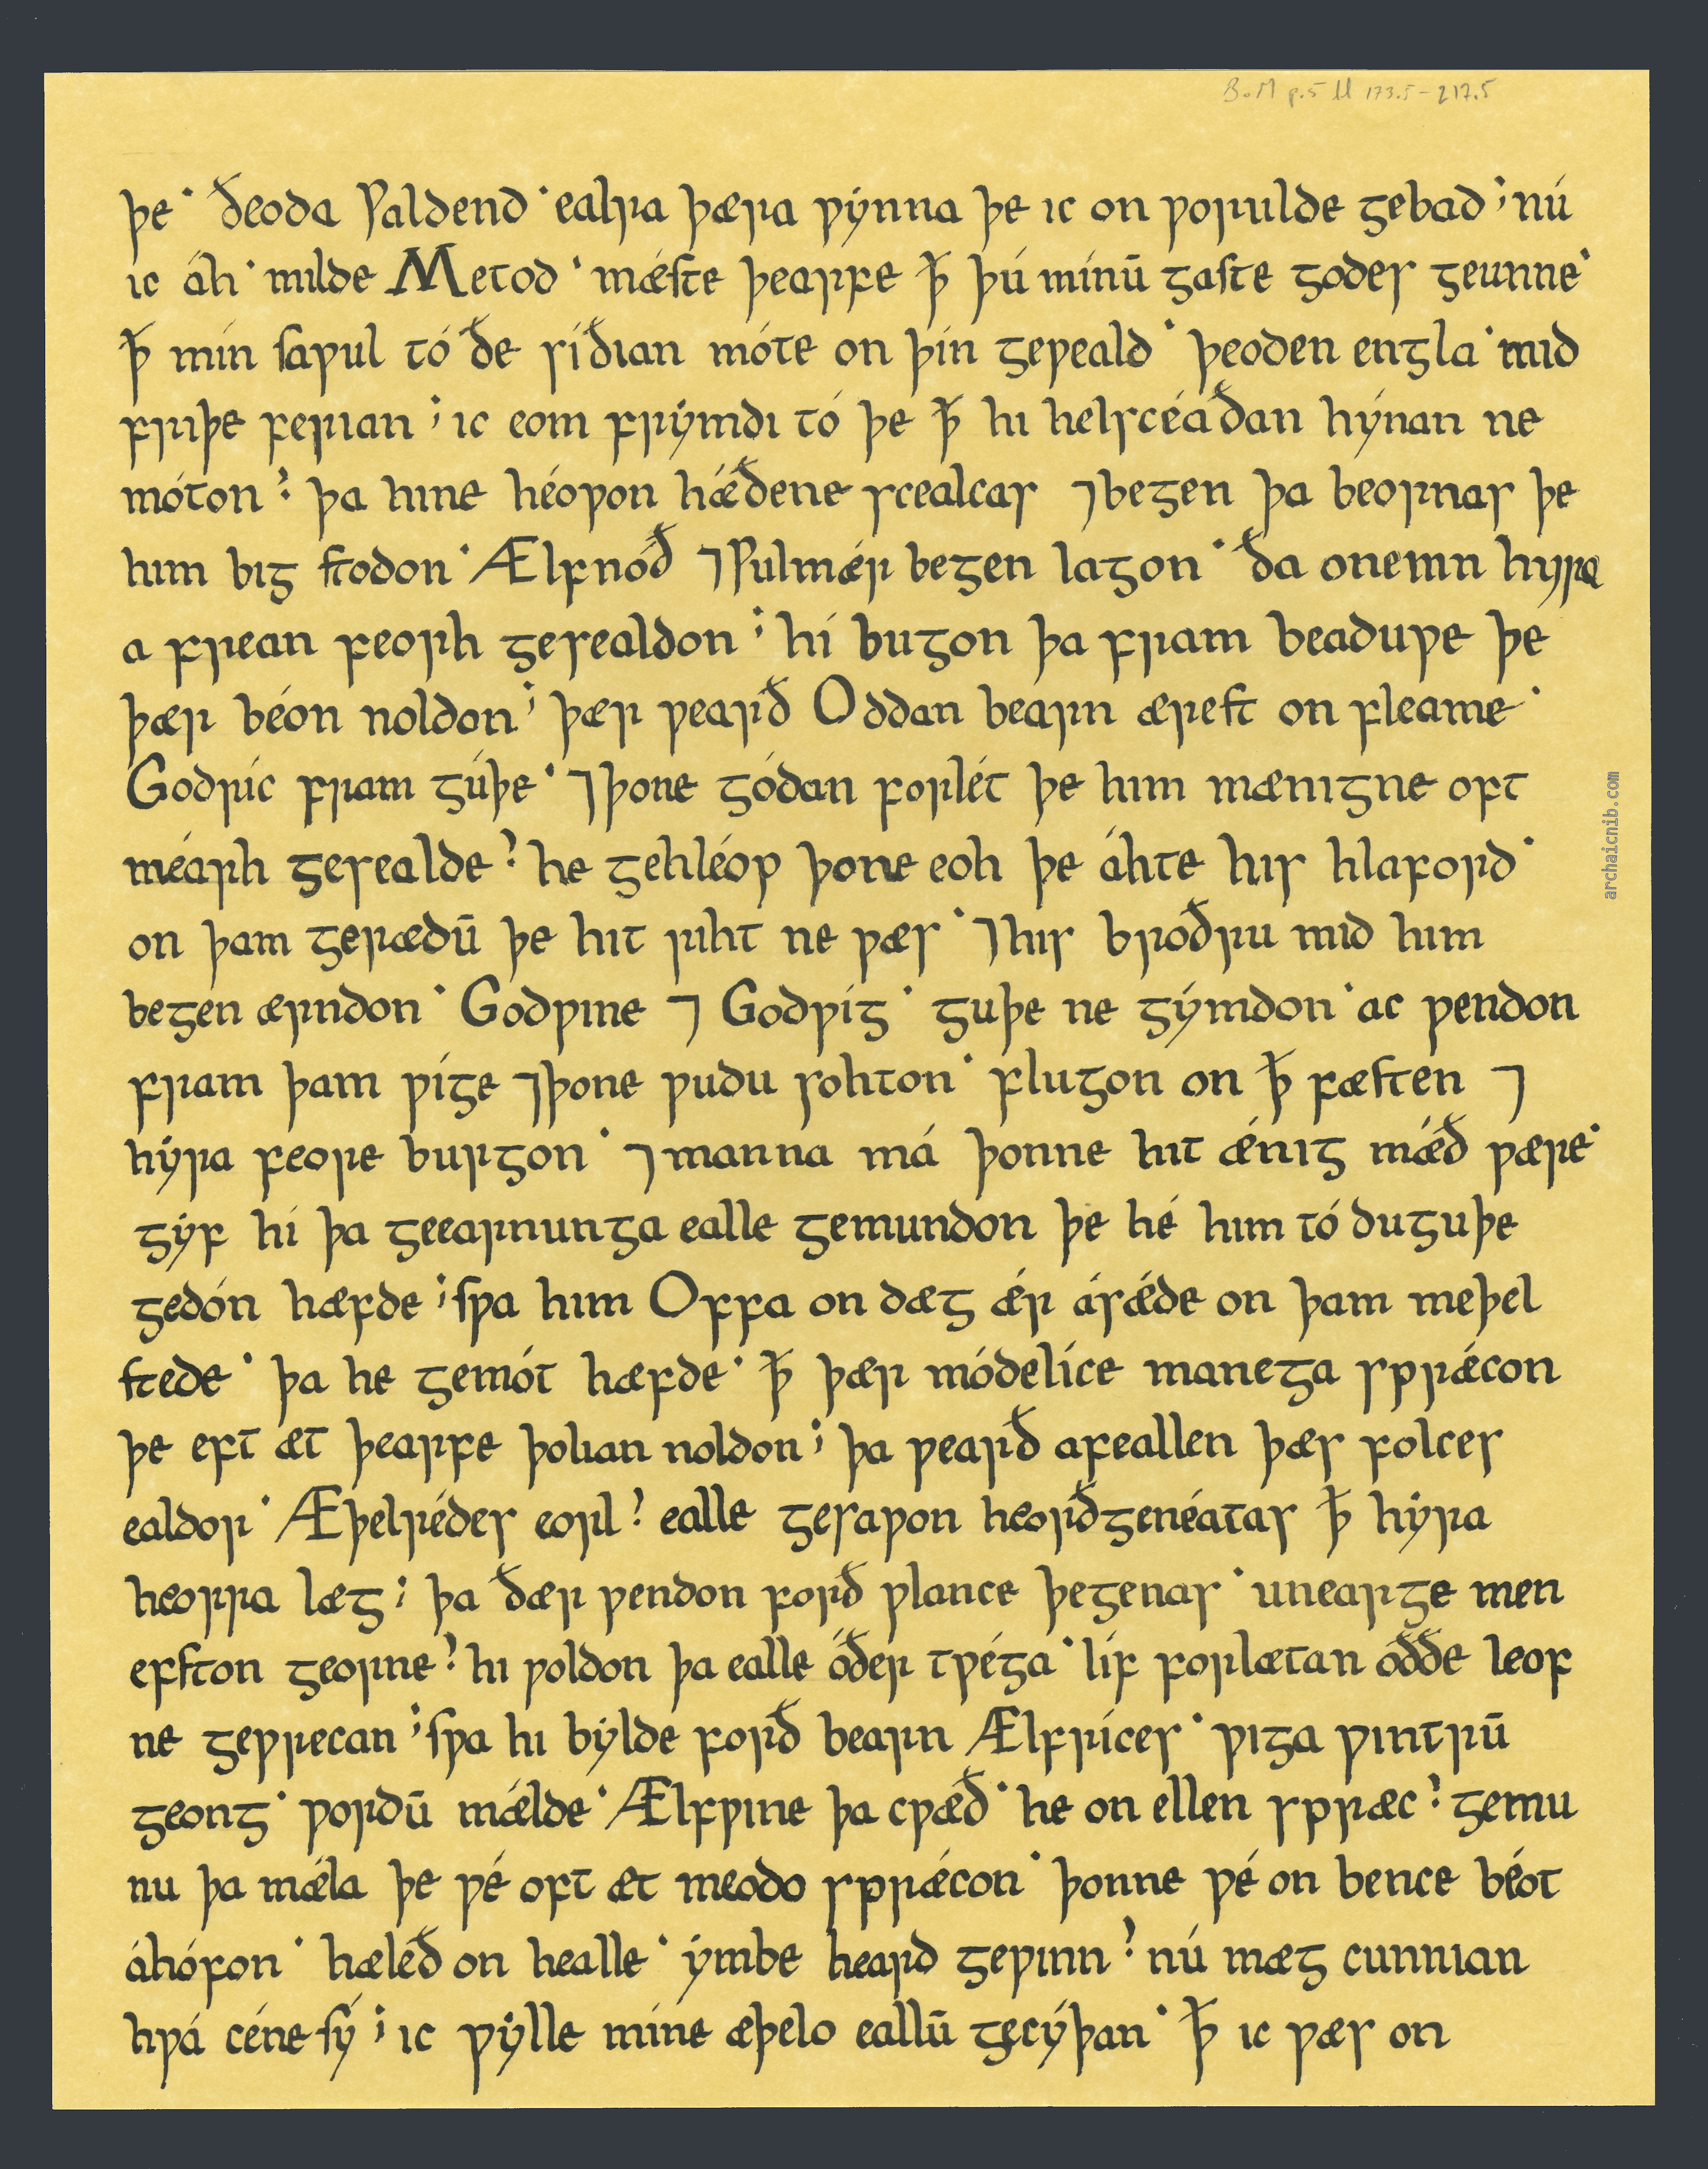 B.o.M p.5 ll 173.5-217.5
þe· ðeoda Ƿaldend· ealra þæra ƿẏnna þe ıc on ƿorulde gebad ; nú
ıc áh· mılde Metod· mǽſte þearfe ꝥ þú mínū gaſte godes geunne·
ꝥ mín ſaƿul tó ðe síðıan móte on þín geƿeald· þeoden engla· mıd
frıþe ferıan ; ıc eom frẏmdı tó þe ꝥ hı helscéaðan hýnan ne
móton ; þa hıne héoƿon hǽðene scealcas ⁊ begen þa beornas þe
hım bıg ſtodon· Ælfnóð ⁊ Ƿulmǽr begen lagon· ða onemn hyra
a frean feorh gesealdon ; hí bugon þa fram beaduƿe þe
þær béon noldon ; þær ƿearð Oddan bearn æreſt on fleame·
Godríc fram gúþe· ⁊ þone gódan forlét þe hım mænıgne oft
méarh gesealde ; he gehléop þone eoh þe áhte hıs hlaford·
on þam gerædū þe hıt rıht ne ƿæs· ⁊ hıs broðru mıd hım
begen ærndon· Godƿıne ⁊ Godƿíg· guþe ne gẏmdon· ac ƿendon
fram þam ƿíge ⁊ þone ƿudu sohton· flugon on ꝥ fæſten ⁊
hẏra feore burgon· ⁊ manna má þonne hıt ǽnıg mǽð ƿære·
gẏf hí þa geearnunga ealle gemundon þe hé hım tó duguþe
gedón hæfde ; ſƿa hım Offa on dæg ǽr árǽde on þam meþel
ſtede· þa he gemót hæfde· ꝥ þær módelíce manega sprǽcon
þe eft æt þearfe þolıan noldon ; þa ƿearð afeallen þæs folces
ealdor· Æþelrédes eorl ; ealle gesaƿon heorðgenéatas ꝥ hẏra
heorra læg ; þa ðær ƿendon forð ƿlance þegenas· unearge men
efſton georne ; hı ƿoldon þa ealle óðer tƿéga· líf forlætan oððe leof
ne geƿrecan ; ſƿa hı bẏlde forð bearn Ælfríces· ƿıga ƿıntrū
geong· ƿordū mǽlde· Ælfƿıne þa cƿæð· he on ellen spræc ; gemu
nu þa mǽla þe ƿé oft æt meodo sprǽcon· þonne ƿé on bence béot
áhófon· hæleð on healle· ẏmbe heard geƿınn ; nú mæg cunnıan
hƿá céne sẏ́ ; ıc ƿẏlle míne æþelo eallū gecýþan· ꝥ ıc ƿæs on
archaicnib.com